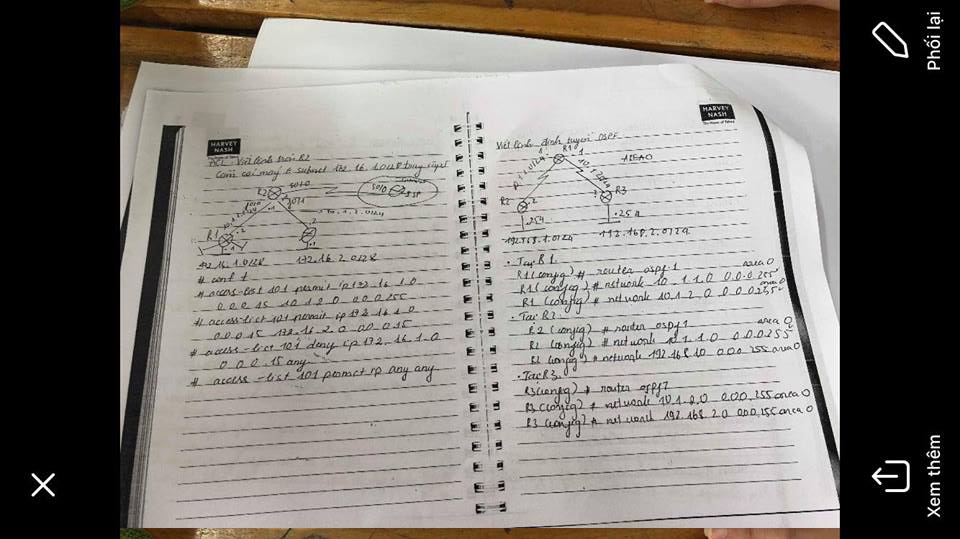 HARVEY
NASH
ACL: Viết lệnh trên R2
Cấm các máy ∈ subnet 172.16.1.0/28 truy cập
R2
S0/0
S0/0
ISP
.1
.2
10.1.2.0/24
R1
.2
.1
.1
172.16.1.0/28
172.16.2.0/28
# conf t
# access-list 101 permit ip 172.16.1.0
0.0.0.15 10.1.2.0 0.0.0.255
# access-list 101 permit ip 172.16.1.0
0.0.0.15 172.16.2.0 0.0.0.15
# access-list 101 deny ip 172.16.1.0
0.0.0.15 any
# access-list 101 permit ip any any
HARVEY
NASH
The Power of Talent
Viết lệnh định tuyến OSPF
R1
.1
AREA0
10.1.1.0/24
10.1.2.0/24
R2
.2
R3
.254
.254
192.168.1.0/24
192.168.2.0/24
• Tại R1:
R1(config) # router ospf 1
R1(config) # network 10.1.1.0 0.0.0.255 area 0
R1(config) # network 10.1.2.0 0.0.0.255 area 0
• Tại R2:
R2(config) # router ospf 1
R2(config) # network 10.1.1.0 0.0.0.255 area 0
R2(config) # network 192.168.1.0 0.0.0.255 area 0
• Tại R3:
R3(config) # router ospf 1
R3(config) # network 10.1.2.0 0.0.0.255 area 0
R3(config) # network 192.168.2.0 0.0.0.255 area 0
Phối lại
Xem thêm